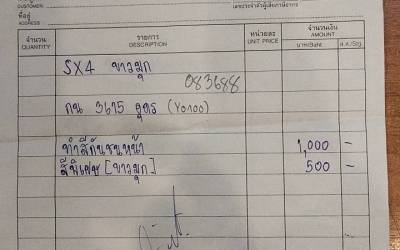 CUSTOMER
เลขประจำตัวผู้เสียภาษีอากร
ที่อยู่
ADDRESS
จำนวน
QUANTITY
รายการ
DESCRIPTION
หน่วยละ
UNIT PRICE
จำนวนเงิน
AMOUNT
บาท/Baht
ส.ต./Stg.
SX4 ขาวมุก
083688
กน 3675 อุดร (
ทำสีกันชนหน้า 1,000 -
สีพิเศษ [ขาวมุก] 500 -